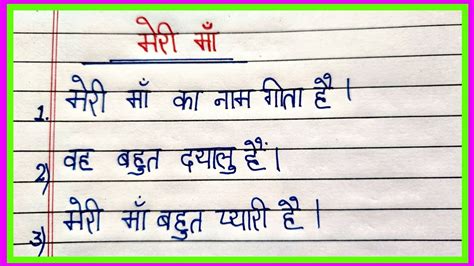 मेरी माँ
1. मेरी माँ का नाम गीता है।
2) वह बहुत दयालु हैं।
3) मेरी माँ बहुत प्यारी है।